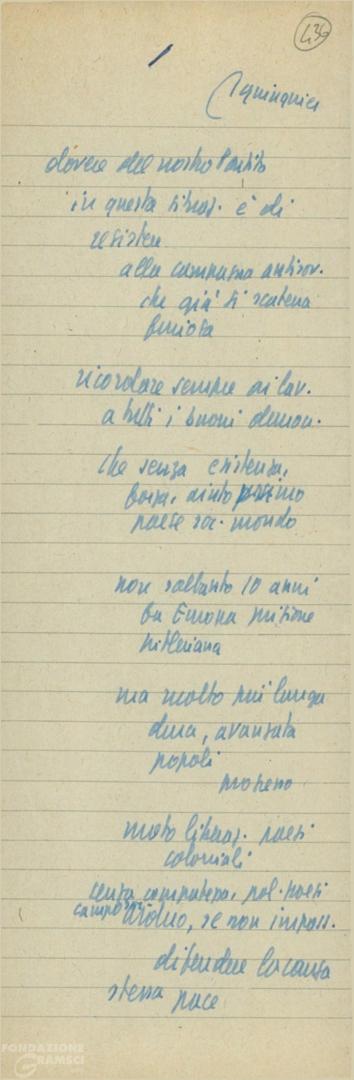 436
dovere del nostro Partito
in questa situaz. è di
resistere
alla campagna antisov.
che già si scatena
furiosa
ricordare sempre ai lav.
a tutti i buoni democr.
che senza esistenza,
forza, aiuto primo
paese soc. mondo
non soltanto 10 anni
fa Europa
hitleriana
ma molto più lunga
dura, avanzata
popoli
progresso
moto liberaz. paesi
coloniali
senza pol. paesi
campo soc.
arduo, se non imposs.
difendere la causa
stessa pace
FONDAZIONE
GRAMSCI